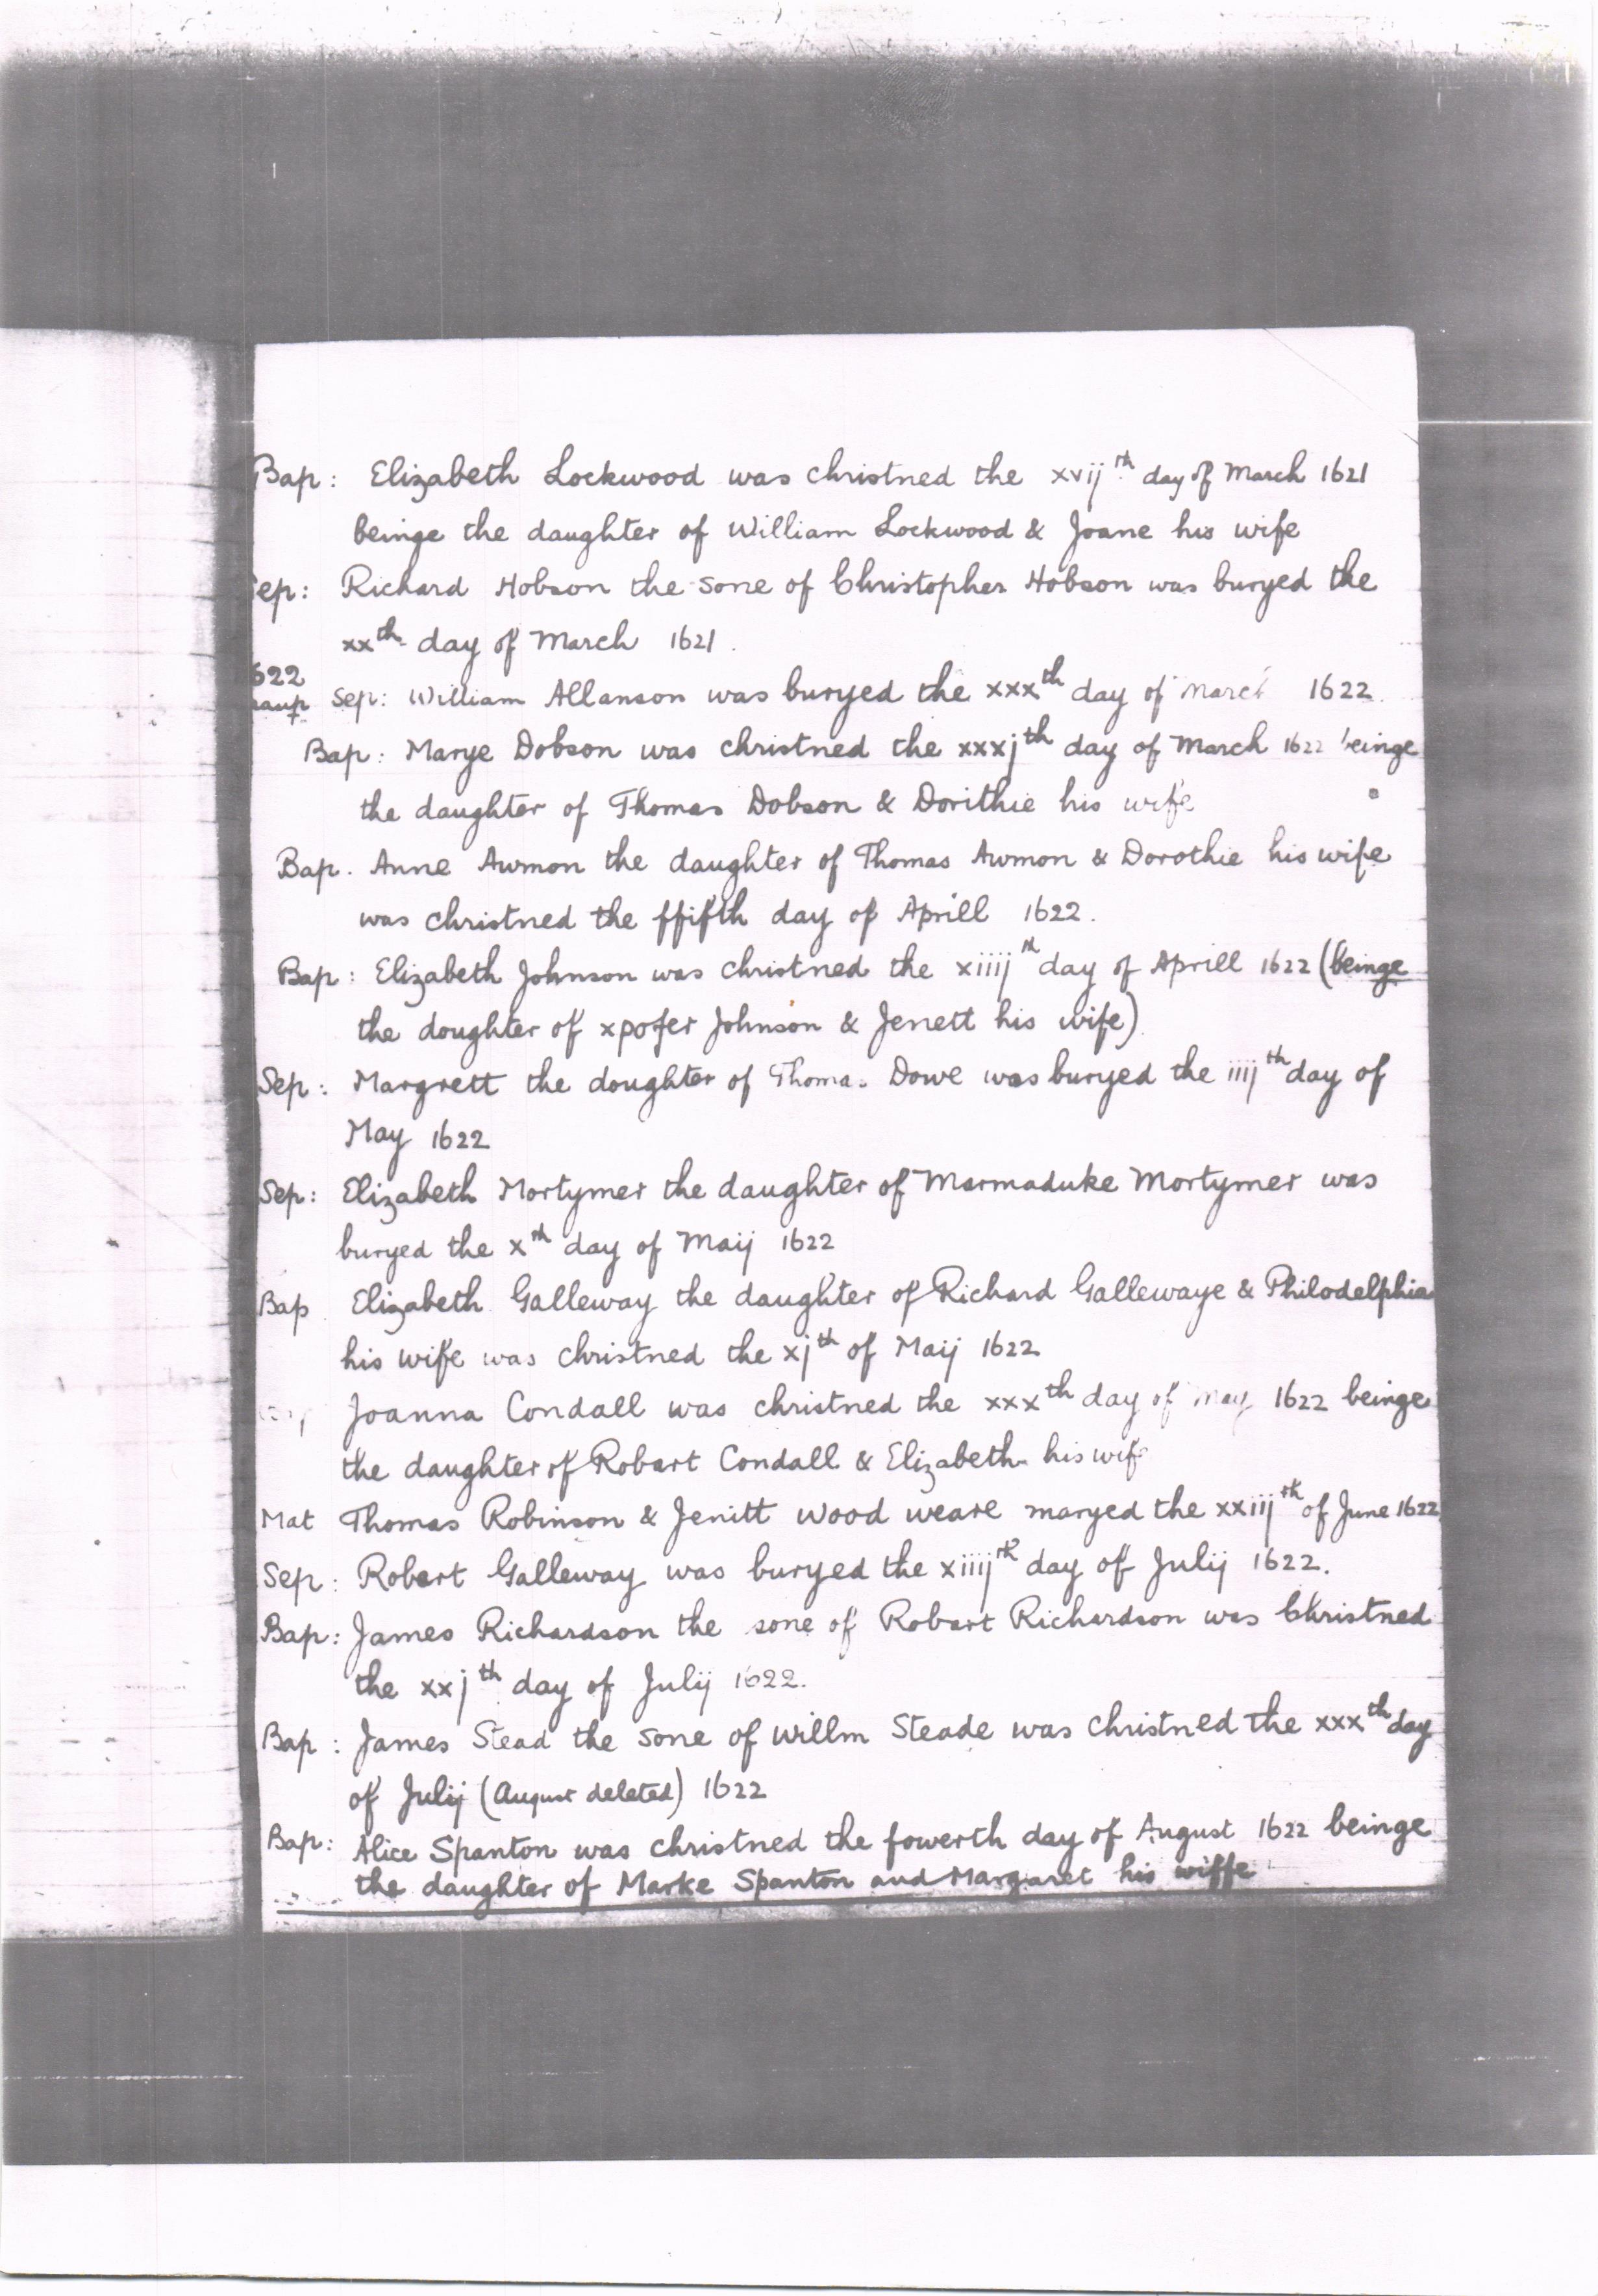 Bap: Elizabeth Lockwood was christned the xvij th day of March 1621
beinge the daughter of William Lockwood & Joane his wife
Sep: Richard Hobson the sone of Christopher Hobson was buryed the
xxth day of March 1621.
622
Sep: William Allanson was buryed the xxxth day of March 1622.
Bap: Marye Dobson was christned the xxxjth day of March 1622 beinge
the daughter of Thomas Dobson & Dorithie his wife
Bap. Anne Awmon the daughter of Thomas Awmon & Dorothie his wife
was christned the ffifth day of Aprill 1622.
Bap: Elizabeth Johnson was christned the xiiij th day of Aprill 1622 (beinge
the doughter of xpofer Johnson & Jenett his wife)
Sep: Margrett the doughter of Thomas Dowe was buryed the iiij th day of
May 1622
Sep: Elizabeth Mortymer the daughter of Marmaduke Mortymer was
buryed the xth day of Maij 1622
Bap Elizabeth Galleway the daughter of Richard Gallewaye & Philodelphia
his wife was christned the xjth of Maij 1622
Joanna Condall was christned the xxxth day of May 1622 beinge
the daughter of Robart Condall & Elizabeth his wife
Mat Thomas Robinson & Jenitt Wood weare maryed the xxiij th of June 1622
Sep: Robart Galleway was buryed the xiiij th day of Julij 1622.
Bap: James Richardson the sone of Robart Richardson was Christned
the xxj th day of Julij 1622.
Bap: James Stead the sone of Willm Steade was christned the xxxth day
of Julij (August deleted) 1622
Bap: Alice Spanton was christned the fowerth day of August 1622 beinge
the daughter of Marke Spanton and Margaret his wiffe